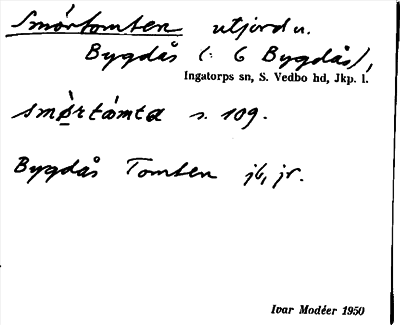 Smörtomten utjord u.
Bygdås (: 6 Bygdås),
Ingatorps sn, S. Vedbo hd, Jkp. l.
smö̀rtåmta s. 109.
Bygdås Tomten jb, jr.
Ivar Modéer 1950